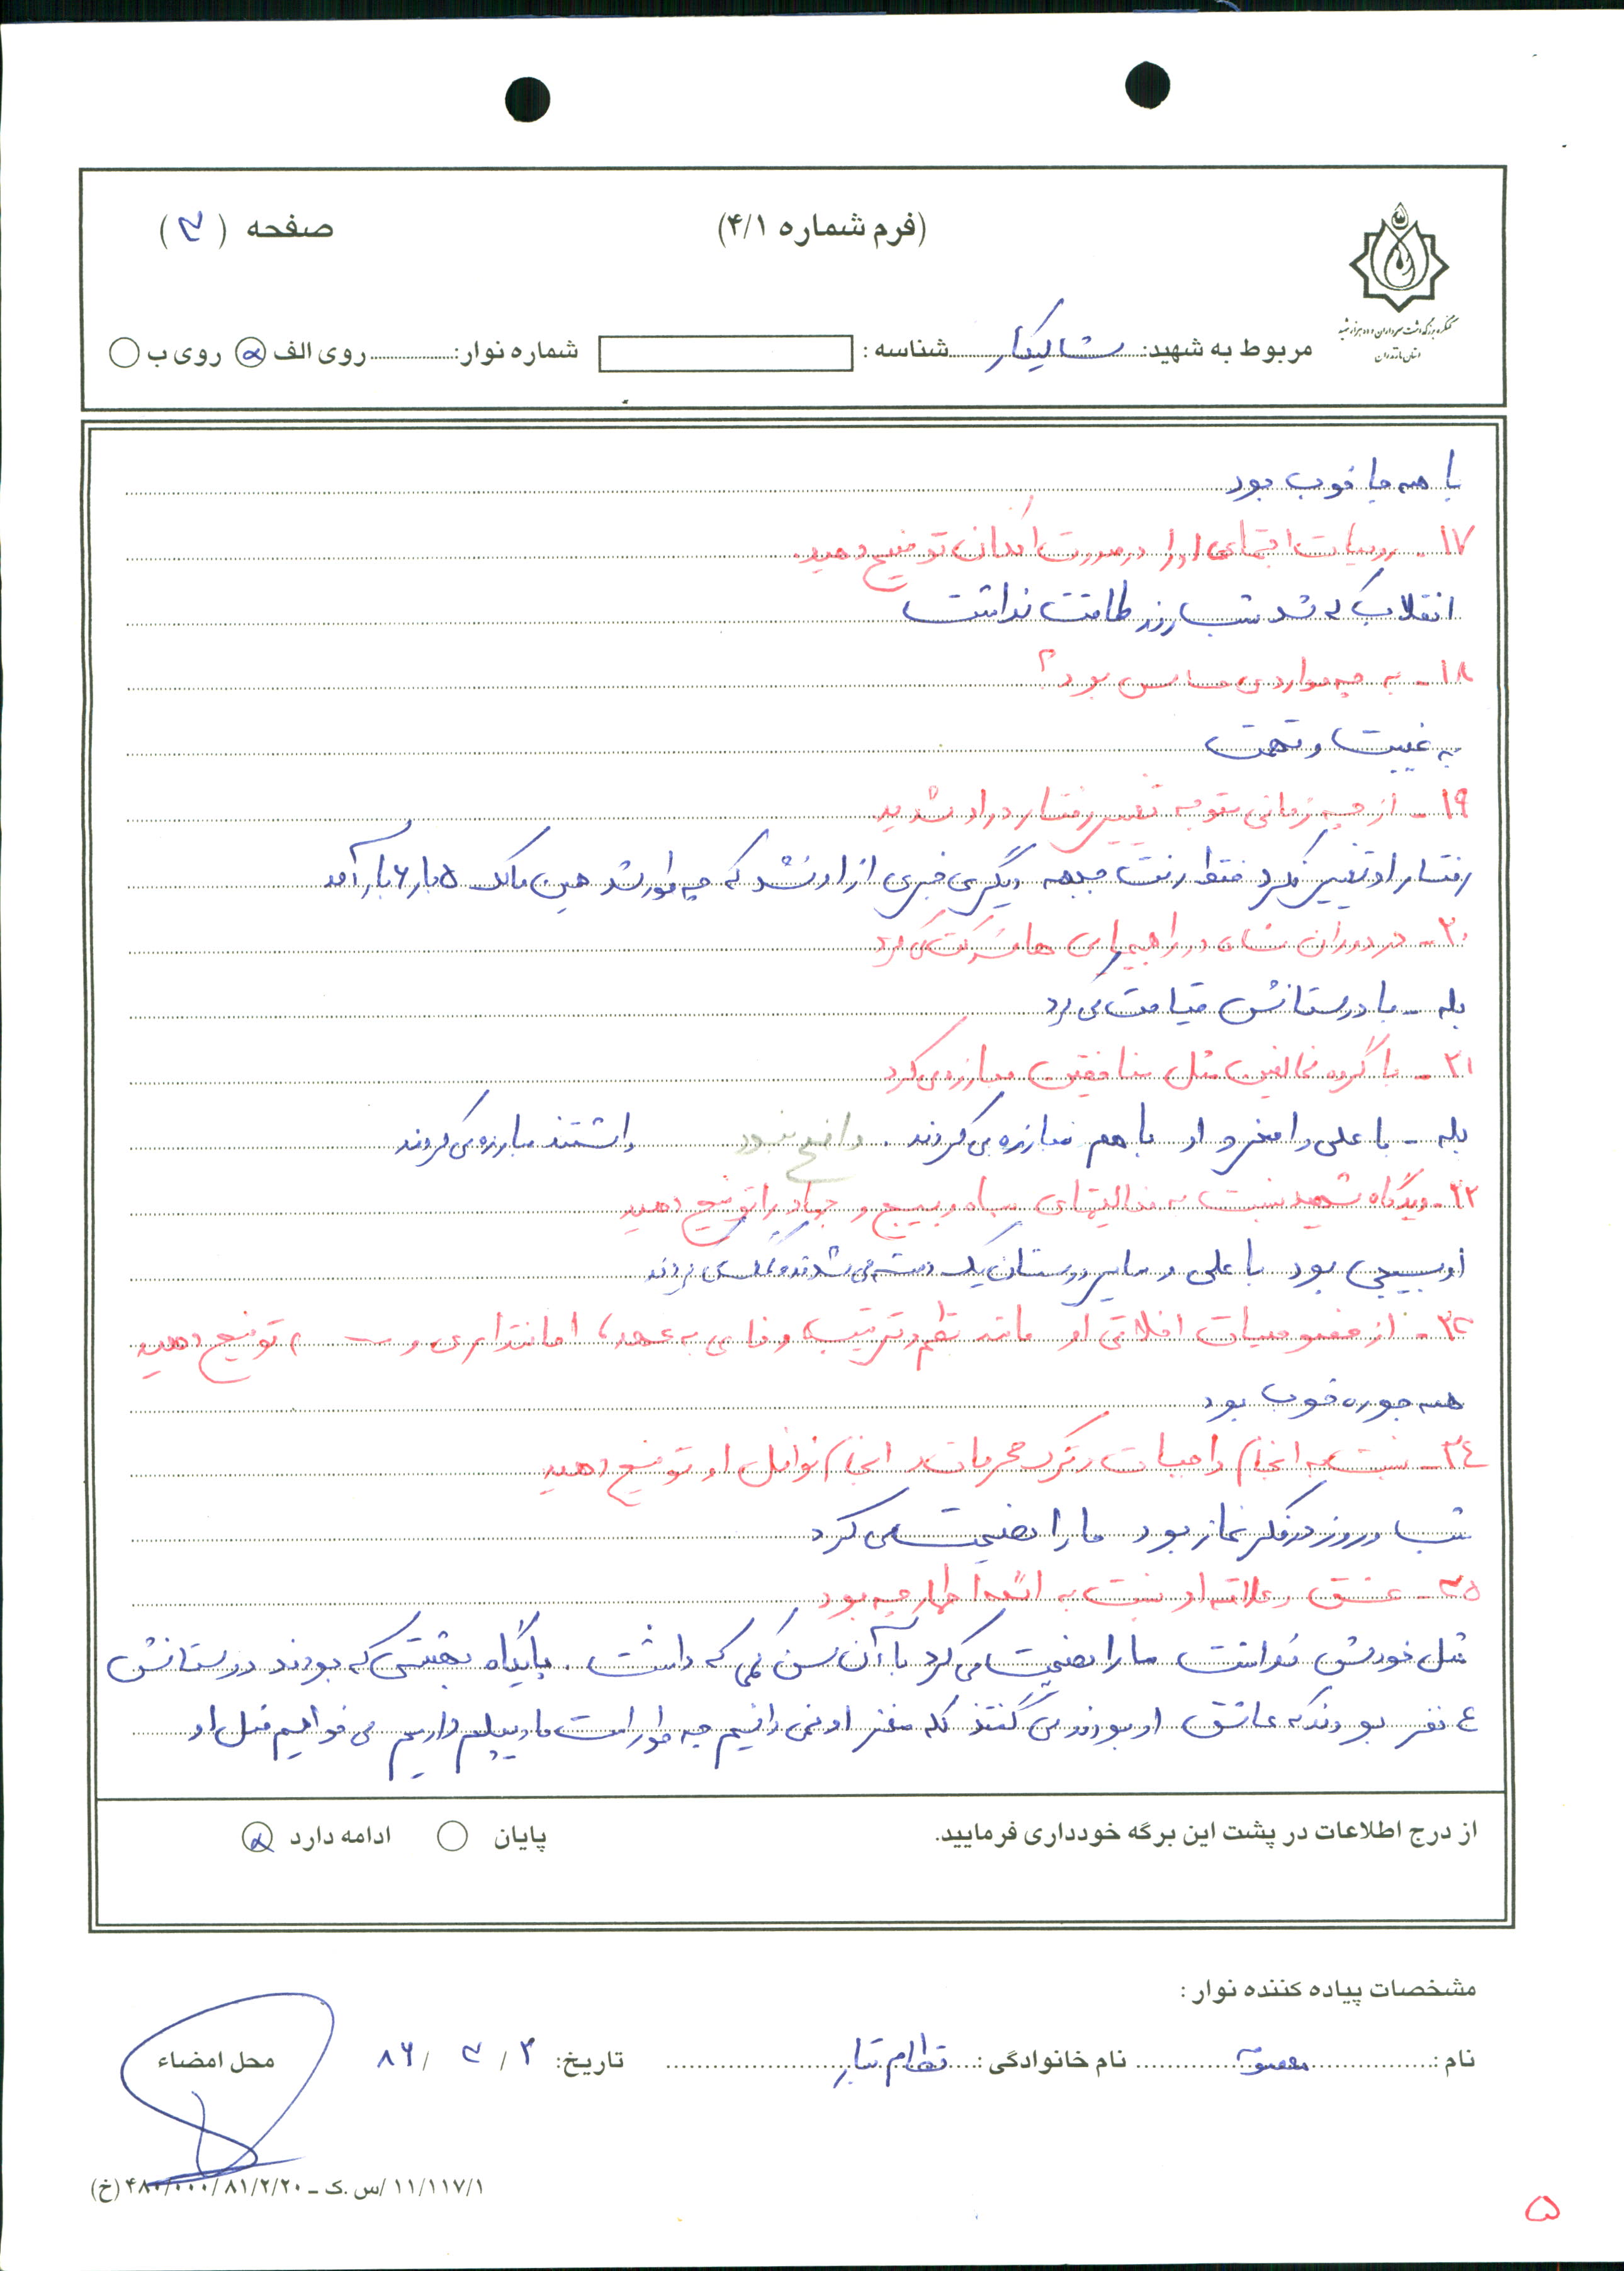 (فرم شماره ۴/۱)
صفحه (۳)
کنگره بزرگداشت سرداران و ده هزار شهید
استان مازندران
مربوط به شهید: شالیکار شناسه: شماره نوار: روی الف روی ب
با همه ما خوب بود
۱۷- روحیات اجتماعی او را در صورت امکان توضیح دهید.
انقلاب که شد شب روز طاقت نداشت
۱۸- به چه مواردی حساس بود؟
به غیبت و تهمت
۱۹- از چه زمانی متوجه تغییر رفتار در او شدید
رفتار او تغییر نکرد فقط رفت جبهه دیگری خبری از او نشد که چه طور شد همین ۵ بار ۶ بار آمد
۲۰- در دوران شاه در راهپیمایی ها شرکت می کرد
بله - با دوستانش قیامت می کرد
۲۱- با گروه مخالفین مثل منافقین مبارزه می کرد
بله - با علی و اصغر و او با هم مبارزه می کردند. واضح نبود داشتند مبارزه می کردند
۲۲- دیدگاه شهید نسبت به فعالیتهای سپاه و بسیج و جهاد را توضیح دهید
او بسیجی بود با علی و سایر دوستان یک دسته می شدند و می زدند
۲۳- از خصوصیات اخلاقی او مانند نظم و ترتیب، وفای به عهد، امانتداری و ... توضیح دهید
همه جوره خوب بود
۲۴- نسبت به انجام واجبات و ترک محرمات و انجام نوافل او توضیح دهید
شب و روز در فکر نماز بود ما را نصیحت می کرد
۲۵- عشق و علاقه او نسبت به ائمه اطهار چه بود
مثل خودش نداشت ما را نصیحت می کرد با آن سن کمی که داشت. پایگاه بهشتی که بودند دوستانش
۴ نفر بودند که عاشق او بودند می گفتند کله مغز او نمی دانیم چه طور است ما دیپلم داریم می خواهیم مثل او
از درج اطلاعات در پشت این برگه خودداری فرمایید.
پایان ادامه دارد
مشخصات پیاده کننده نوار:
نام: معصومه نام خانوادگی: نظام تبار تاریخ: ۲ / ۳ / ۸۶ محل امضاء
۱۱/۱۱۷/۱ /س.ک - ۴۸۰/۰۰۰/۸۱/۲/۲۰ (خ)
۵